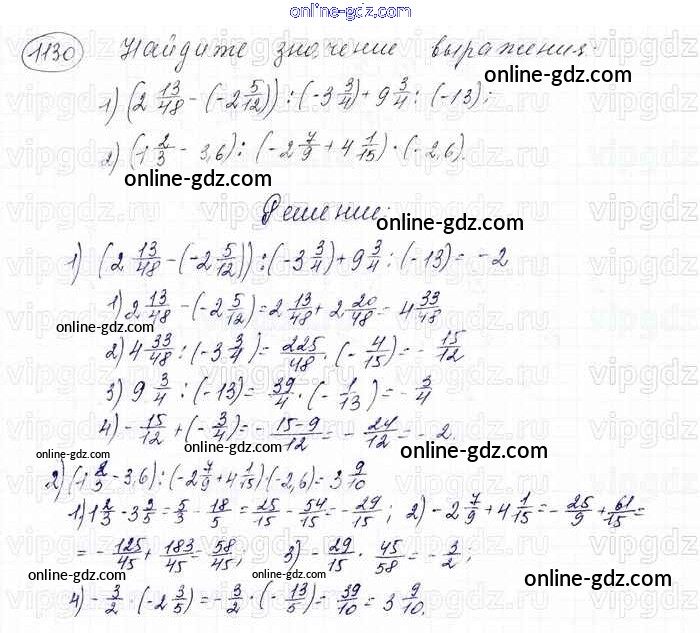 online-gdz.com
1130 Найдите значение выражения.
online-gdz.com
1) (2 13/48 - (-2 5/12)) : (-3 3/4) + 9 3/4 : (-13);
2) (1 2/3 - 3,6) : (-2 7/9 + 4 1/15) · (-2,6).
online-gdz.com online-gdz.com
Решение:
online-gdz.com
1) (2 13/48 - (-2 5/12)) : (-3 3/4) + 9 3/4 : (-13) = -2
1) 2 13/48 - (-2 5/12) = 2 13/48 + 2 20/48 = 4 33/48
online-gdz.com online-gdz.com
2) 4 33/48 : (-3 3/4) = 225/48 · (-4/15) = -15/12
3) 9 3/4 : (-13) = 39/4 · (-1/13) = -3/4
4) -15/12 + (-3/4) = -15-9/12 = -24/12 = -2.
online-gdz.com online-gdz.com
2) (1 2/3 - 3,6) : (-2 7/9 + 4 1/15) (-2,6) = 3 9/10
1) 1 2/3 - 3 3/5 = 5/3 - 18/5 = 25/15 - 54/15 = -29/15; 2) -2 7/9 + 4 1/15 = -25/9 + 61/15 =
= -125/45 + 183/45 = 58/45; 3) -29/15 · 45/58 = -3/2;
online-gdz.com online-gdz.com online-gdz.com
4) -3/2 · (-2 3/5) = -3/2 · (-13/5) = 39/10 = 3 9/10.